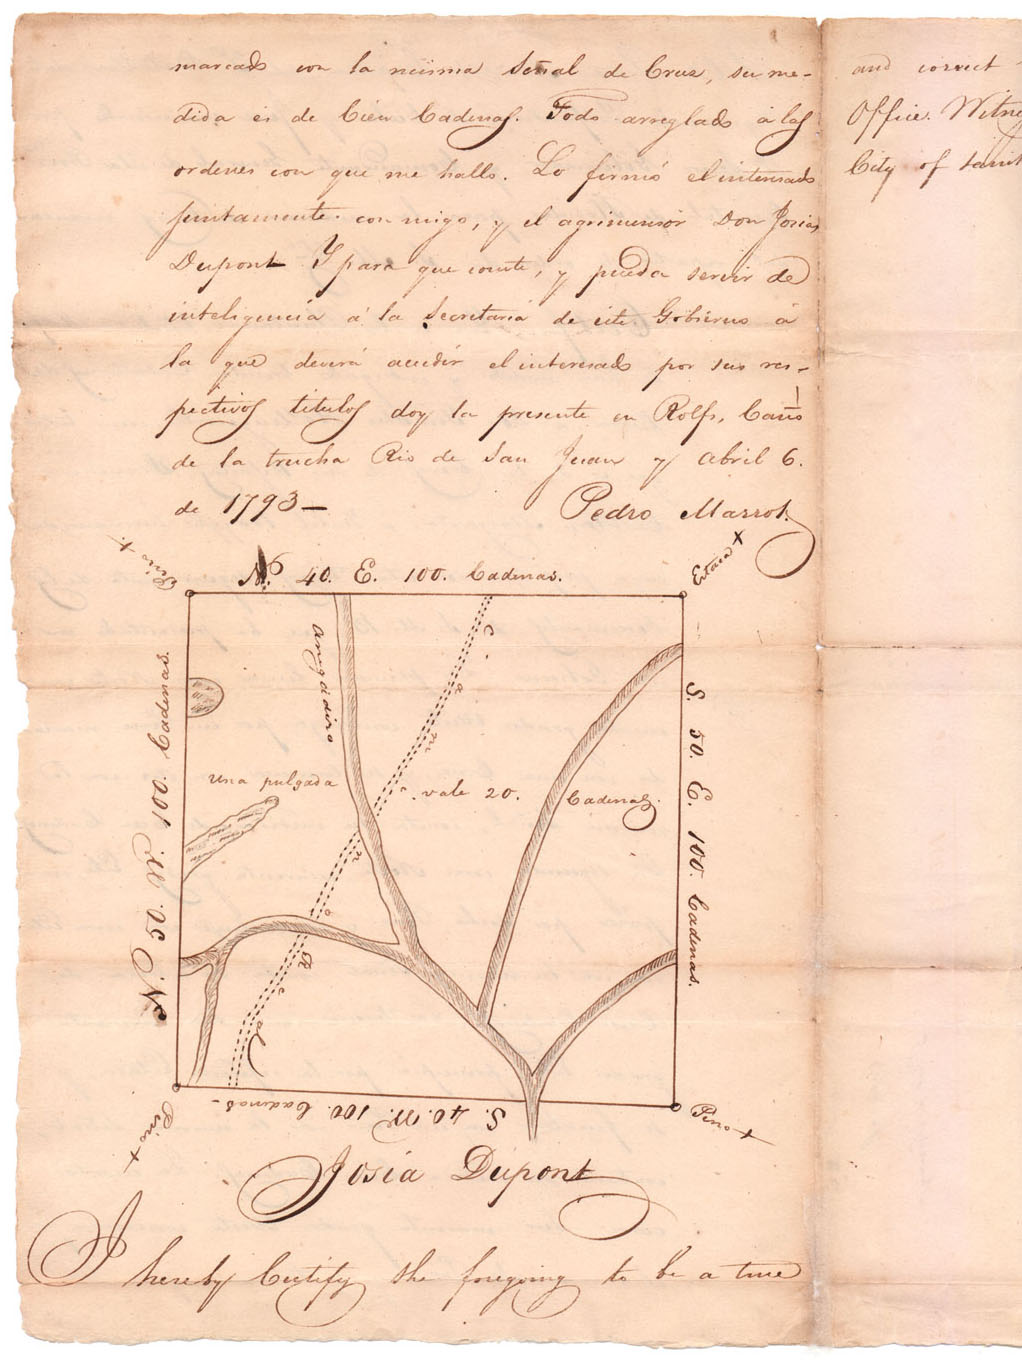 marcado con la misma Señal de Cruz, su me-
dida es de Cien Cadenas. Todo arreglado á las
ordenes con que me hallo. Lo firmó el interesado
juntamente conmigo, y el agrimensór Don Josias
Dupont Y para que conste, y pueda servir de
inteligencia á la Secretaria de este Gobierno á
la que deverá acudir el interesado por sus res-
pectivos titulos doy la presente en Rolfs, Caño
de la trucha Rio de San Juan y Abril 6.
de 1793—
Pedro Marrot.
Pino +
N. 40. E. 100. Cadenas.
Estaca +
N. 50. W. 100. Cadenas.
S. 50. E. 100. Cadenas.
Camino Real
una pulgada vale 20. Cadenas.
S. 40. W. 100. Cadenas-
Pino +
Pino +
Josia Dupont
I hereby Certify the foregoing to be a true
and correct
Office. Witne
City of Saint